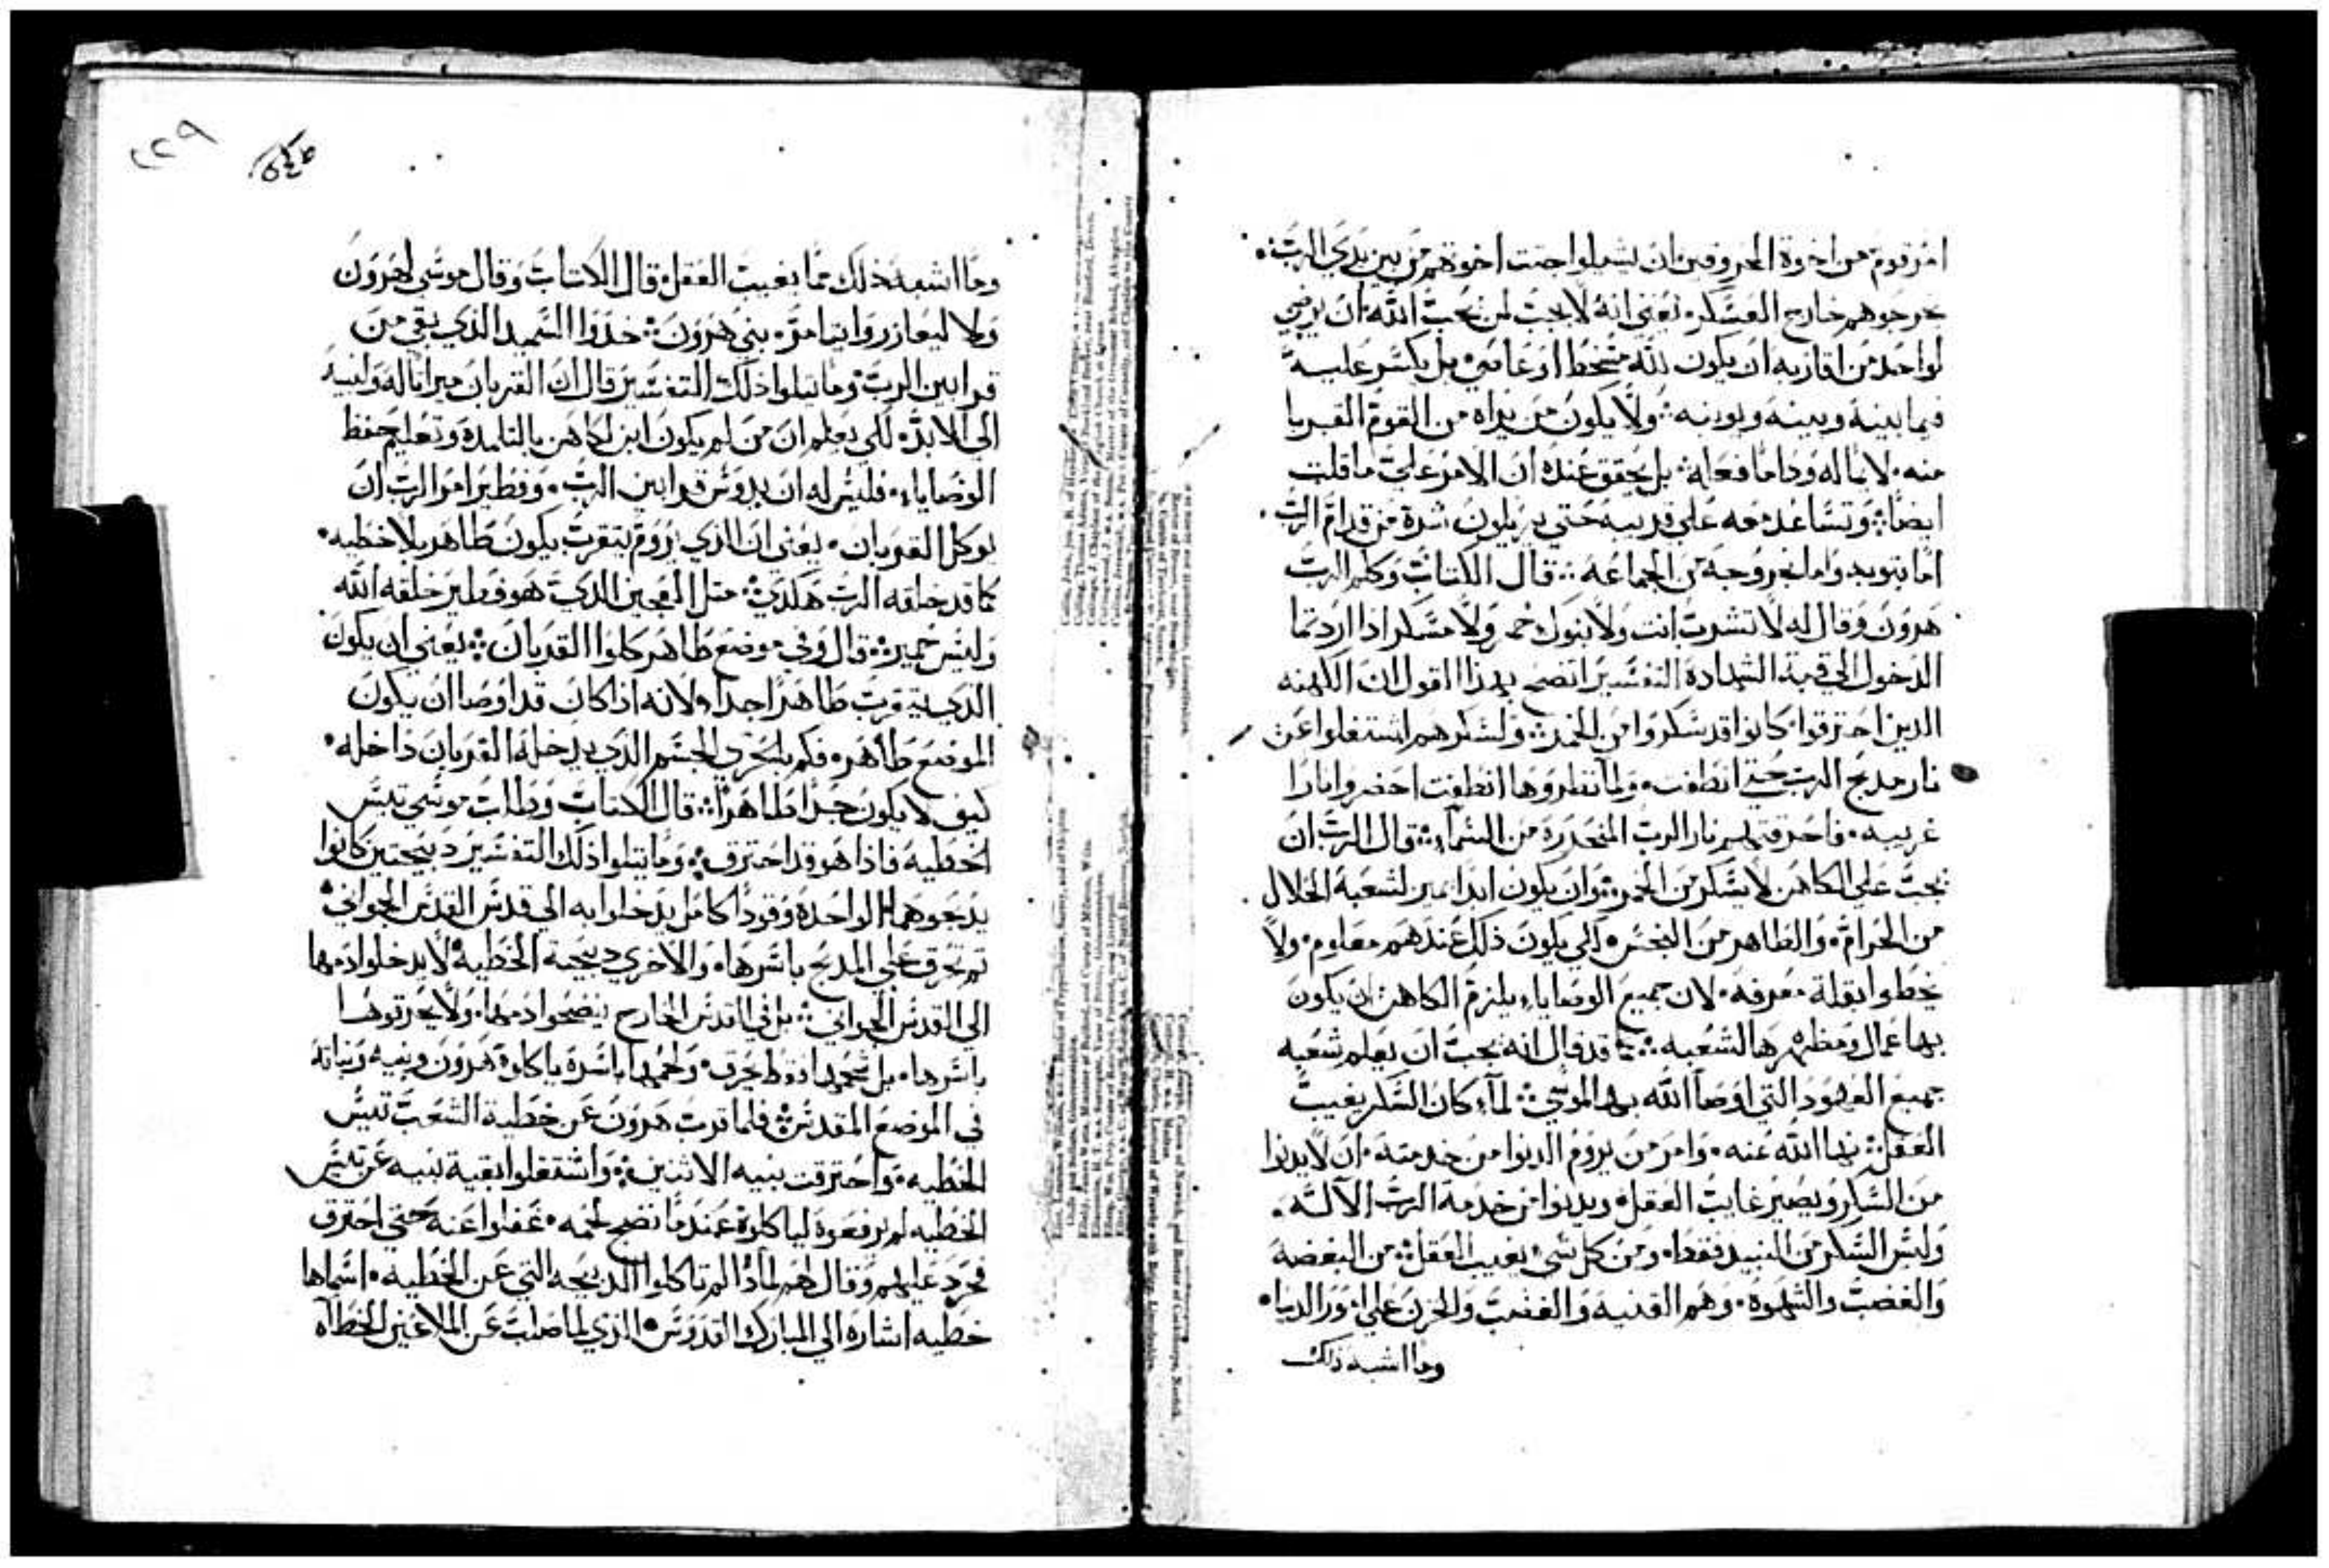 امر قوم من اخوة المحروقين ان يشيلوا جتت اخوتهم من بين يدي الرب
يخرجوهم خارج العسكر يعني انه لا يجب لمن يحب الله ان يرضي
لواحد من اقاربه ان يكون لله مسخط او عاصي بل يكسر عليه
فيما بينه وبينه ويوبنه ولا يكون من يراه من القوم القربا
منه لا يماله ودا ما فعله بل يحقق عنده ان الامر علي ما قلت
ايضا وتساعد معه علي قريبه حتي يزيلون شره من قدام الرب
اما بتوبه واما بخروجه من الجماعه قال الكتاب وكلم الرب
هرون وقال له لا تشرب انت ولا بنوك خمر ولا مسكر اذا اردتما
الدخول الي قبة الشهادة التفسير اتضح بهذا اقول ان الكهنه
الدين احترقوا كانوا قد سكروا من الخمر ولسكرهم اشتغلوا عن
نار مدبح الرب حتي انطفت ولما نظروها انطفت احضروا نارا
غريبه فاحرقتهم نار الرب المنحدرة من السماء قال الرب ان
يجب علي الكاهن لا يسكر من الخمر وان يكون ابدا يميز لشعبه الحلال
من الحرام والطاهر من النجس لكي يكون ذلك عندهم معلوم ولا
يخطوا بقلة معرفه لان جميع الوصايا يلزم الكاهن ان يكون
بها عمال ومظهرها لشعبه كما قد قال انه يجب ان يعلم شعبه
جميع العهود التي اوصا الله بها لموسي لما كان السكر يغيب
العقل نها الله عنه وامر من يروم الدنوا من خدمته ان لا يدنوا
من السكر ويصير غايب العقل ويدنوا من خدمة الرب الاله
وليس السكر من النبيد فقط ومن كل شي يغيب العقل من البغضه
والغضب والشهوة وهم القنيه والغضب والحزن علي امور الدنيا
وما اشبه ذلك
٢٢٩
وما اشبه ذلك مما يغيب العقل قال الكتاب وقال موسي لهرون
ولا ليعازر وايتامر بني هرون خدوا السميد الدي بقي من
قرابين الرب وما يتلوا ذلك التفسير قال ان القربان ميراثا له ولبنيه
الي الابد لكي يعلم ان من لم يكون ابن لكاهن بالتلمدة وتعليم حفظ
الوصايا فليس له ان يدوس قرابين الرب وفطير امر الرب ان
يوكل القربان يعني ان الذي يروم يتقرب يكون طاهر بلا خطيه
كما قد خلقه الرب هكدي متل العجين الدي هو فطير خلقه الله
وليس خمير قال وفي موضع طاهر كلوا القربان يعني ان يكون
الدي يتقرب طاهرا جدا لانه اذا كان قد اوصا ان يكون
الموضع طاهر فكم بالحري الجسم الدي يدخله القربان داخله
كيف لا يكون جدا طاهرا قال الكتاب وطلب موسي تيس
الخطيه فاذا هو قد احترق وما يتلوا ذلك التفسير دبيحتين كانوا
يدبحوهما الواحدة وقودا كامل يدخلوا به الي قدس القدس الجواني
تم تحرق علي المدبح باسرها والاخري دبيحة الخطيه لا يدخلوا دمها
الي القدس الجواني بل في القدس الخارج ينضحوا دمها ولا يحرقوها
باسرها بل شحمها فقط يحرق ولحمها باسرة ياكلوة هرون وبنيه وبناته
في الموضع المقدس فلما قرب هرون عن خطية الشعب تيس
الخطيه واحترقت بنيه الاثنين واشتغلوا بقية بنيه عن تيس
الخطيه لم يرفعوة لياكلوة عندما نضج لحمه غفلوا عنه حتي احترق
فحرد عليهم وقال لهم لماذا لم تاكلوا الدبيحه التي عن الخطيه اسماها
خطيه اشارة الي المبارك القدوس الذي لما صلب عن الملاعين الخطاه